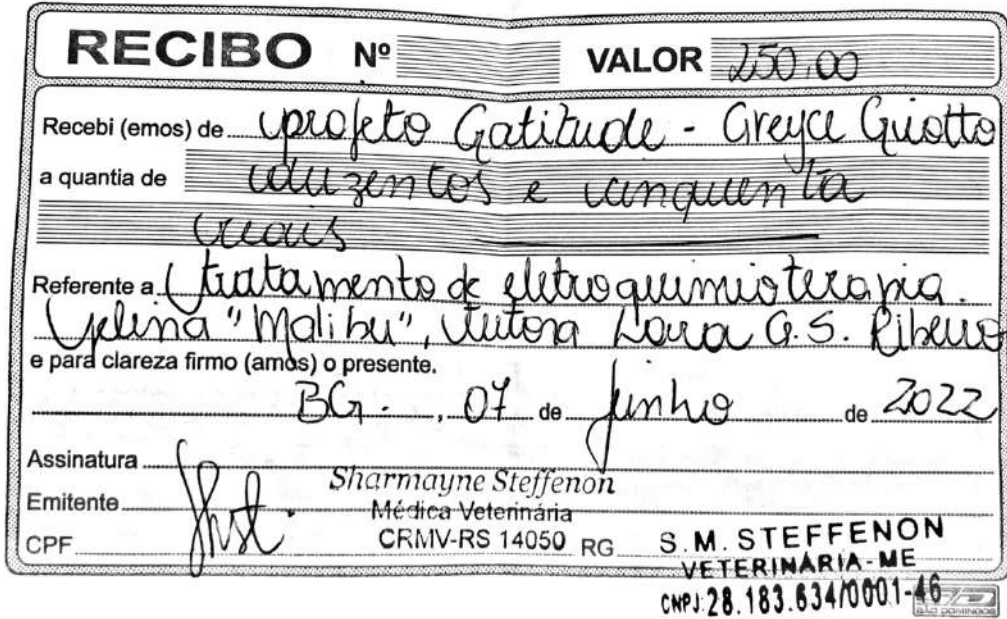 RECIBO Nº VALOR 250,00
Recebi (emos) de projeto Gatitude - Greyce Guiotto
a quantia de duzentos e cinquenta
reais
Referente a tratamento de eletroquimioterapia.
felina "Malibu", tutora Lara G.S. Ribeiro
e para clareza firmo (amos) o presente.
BG. , 07 de junho de 2022
Assinatura
Emitente
Sharmayne Steffenon
Médica Veterinária
CRMV-RS 14050
CPF RG
S.M. STEFFENON
VETERINÁRIA-ME
CNPJ: 28.183.634/0001-46
SÃO DOMINGOS